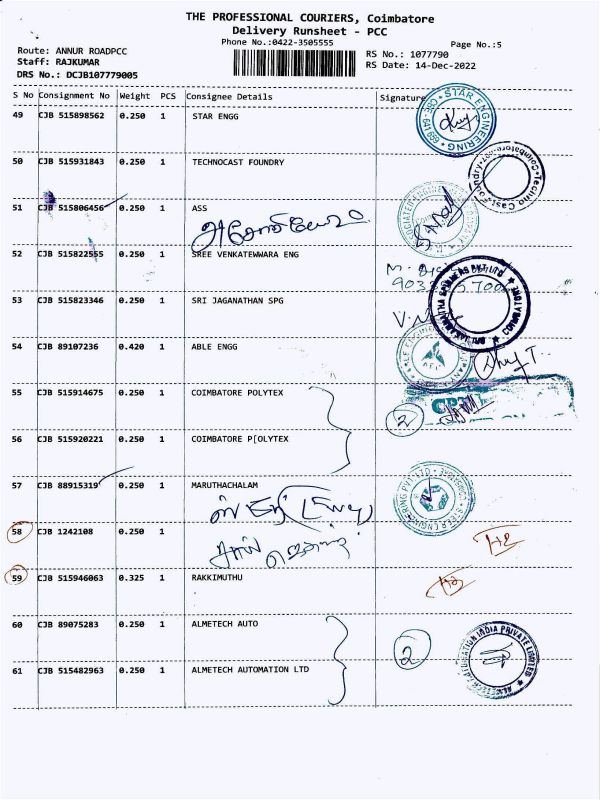 THE PROFESSIONAL COURIERS, Coimbatore
Delivery Runsheet - PCC
Phone No.:0422-3505555
Page No.:5
Route: ANNUR ROADPCC
RS No.: 1077790
Staff: RAJKUMAR
RS Date: 14-Dec-2022
DRS No.: DCJB107779005
S No Consignment No Weight PCS Consignee Details Signature
49 CJB 515898562 0.250 1 STAR ENGG
STAR ENGINEERING
50 CJB 515931843 0.250 1 TECHNOCAST FOUNDRY
51 CJB 515806456 0.250 1 ASS
52 CJB 515822555 0.250 1 SREE VENKATEWWARA ENG
53 CJB 515823346 0.250 1 SRI JAGANATHAN SPG
54 CJB 89107236 0.420 1 ABLE ENGG
55 CJB 515914675 0.250 1 COIMBATORE POLYTEX
2
56 CJB 515920221 0.250 1 COIMBATORE P[OLYTEX
57 CJB 88915319 0.250 1 MARUTHACHALAM
58 CJB 1242108 0.250 1
59 CJB 515946063 0.325 1 RAKKIMUTHU
60 CJB 89075283 0.250 1 ALMETECH AUTO
2
61 CJB 515482963 0.250 1 ALMETECH AUTOMATION LTD